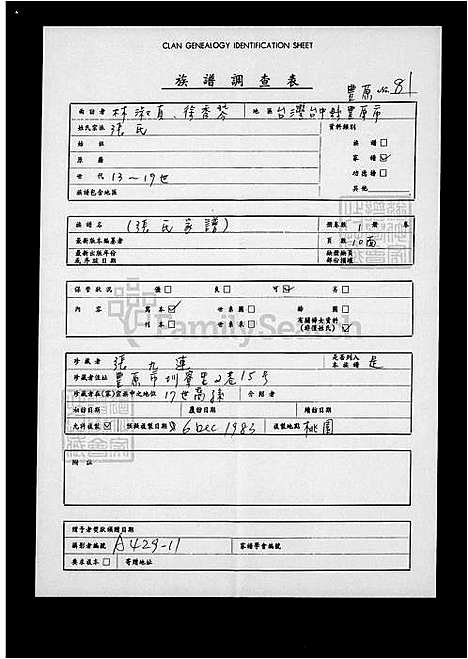 CLAN GENEALOGY IDENTIFICATION SHEET
族譜調查表
豐原 No. 81
面訪者 林淑真、徐香琴 地區 台灣台中縣豐原市
姓氏宗派 張氏 資料類別
始祖 族譜 □
原籍 家譜 ☑
世代 13~19世 功德譜 □
族譜包含地區 其他
族譜名 (張氏家譜) 冊卷數 1 冊 卷
最新版本編纂者 頁數 10面
最新出版年份 缺掉缺頁
或序跋日期 部份損壞
保管狀況 强 □ 良 □ 可 ☑ 劣 □
內容 寫本 ☑ 世系圖 □ 齡圖 □
刊本 □ 世系表 □ 有關婦女資料
(非僅姓氏) □
FamilySearch
珍藏者 張九連 是否列入
本族譜 是
珍藏者住址 豐原市圳寮里2巷15号
珍藏者在(家)宗族中之地位 17世裔孫 介紹者
初訪日期 覆訪日期 續訪日期
允許複製 ☑ 6 Dec 1983 複製地點 桃園
附註
贈予者獎狀頒贈日期
攝影者編號 A429-11 家譜學會編號
要求複本 □ 寄贈地址